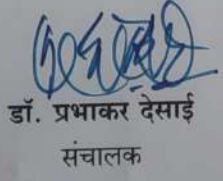 डॉ. प्रभाकर देसाई
संचालक